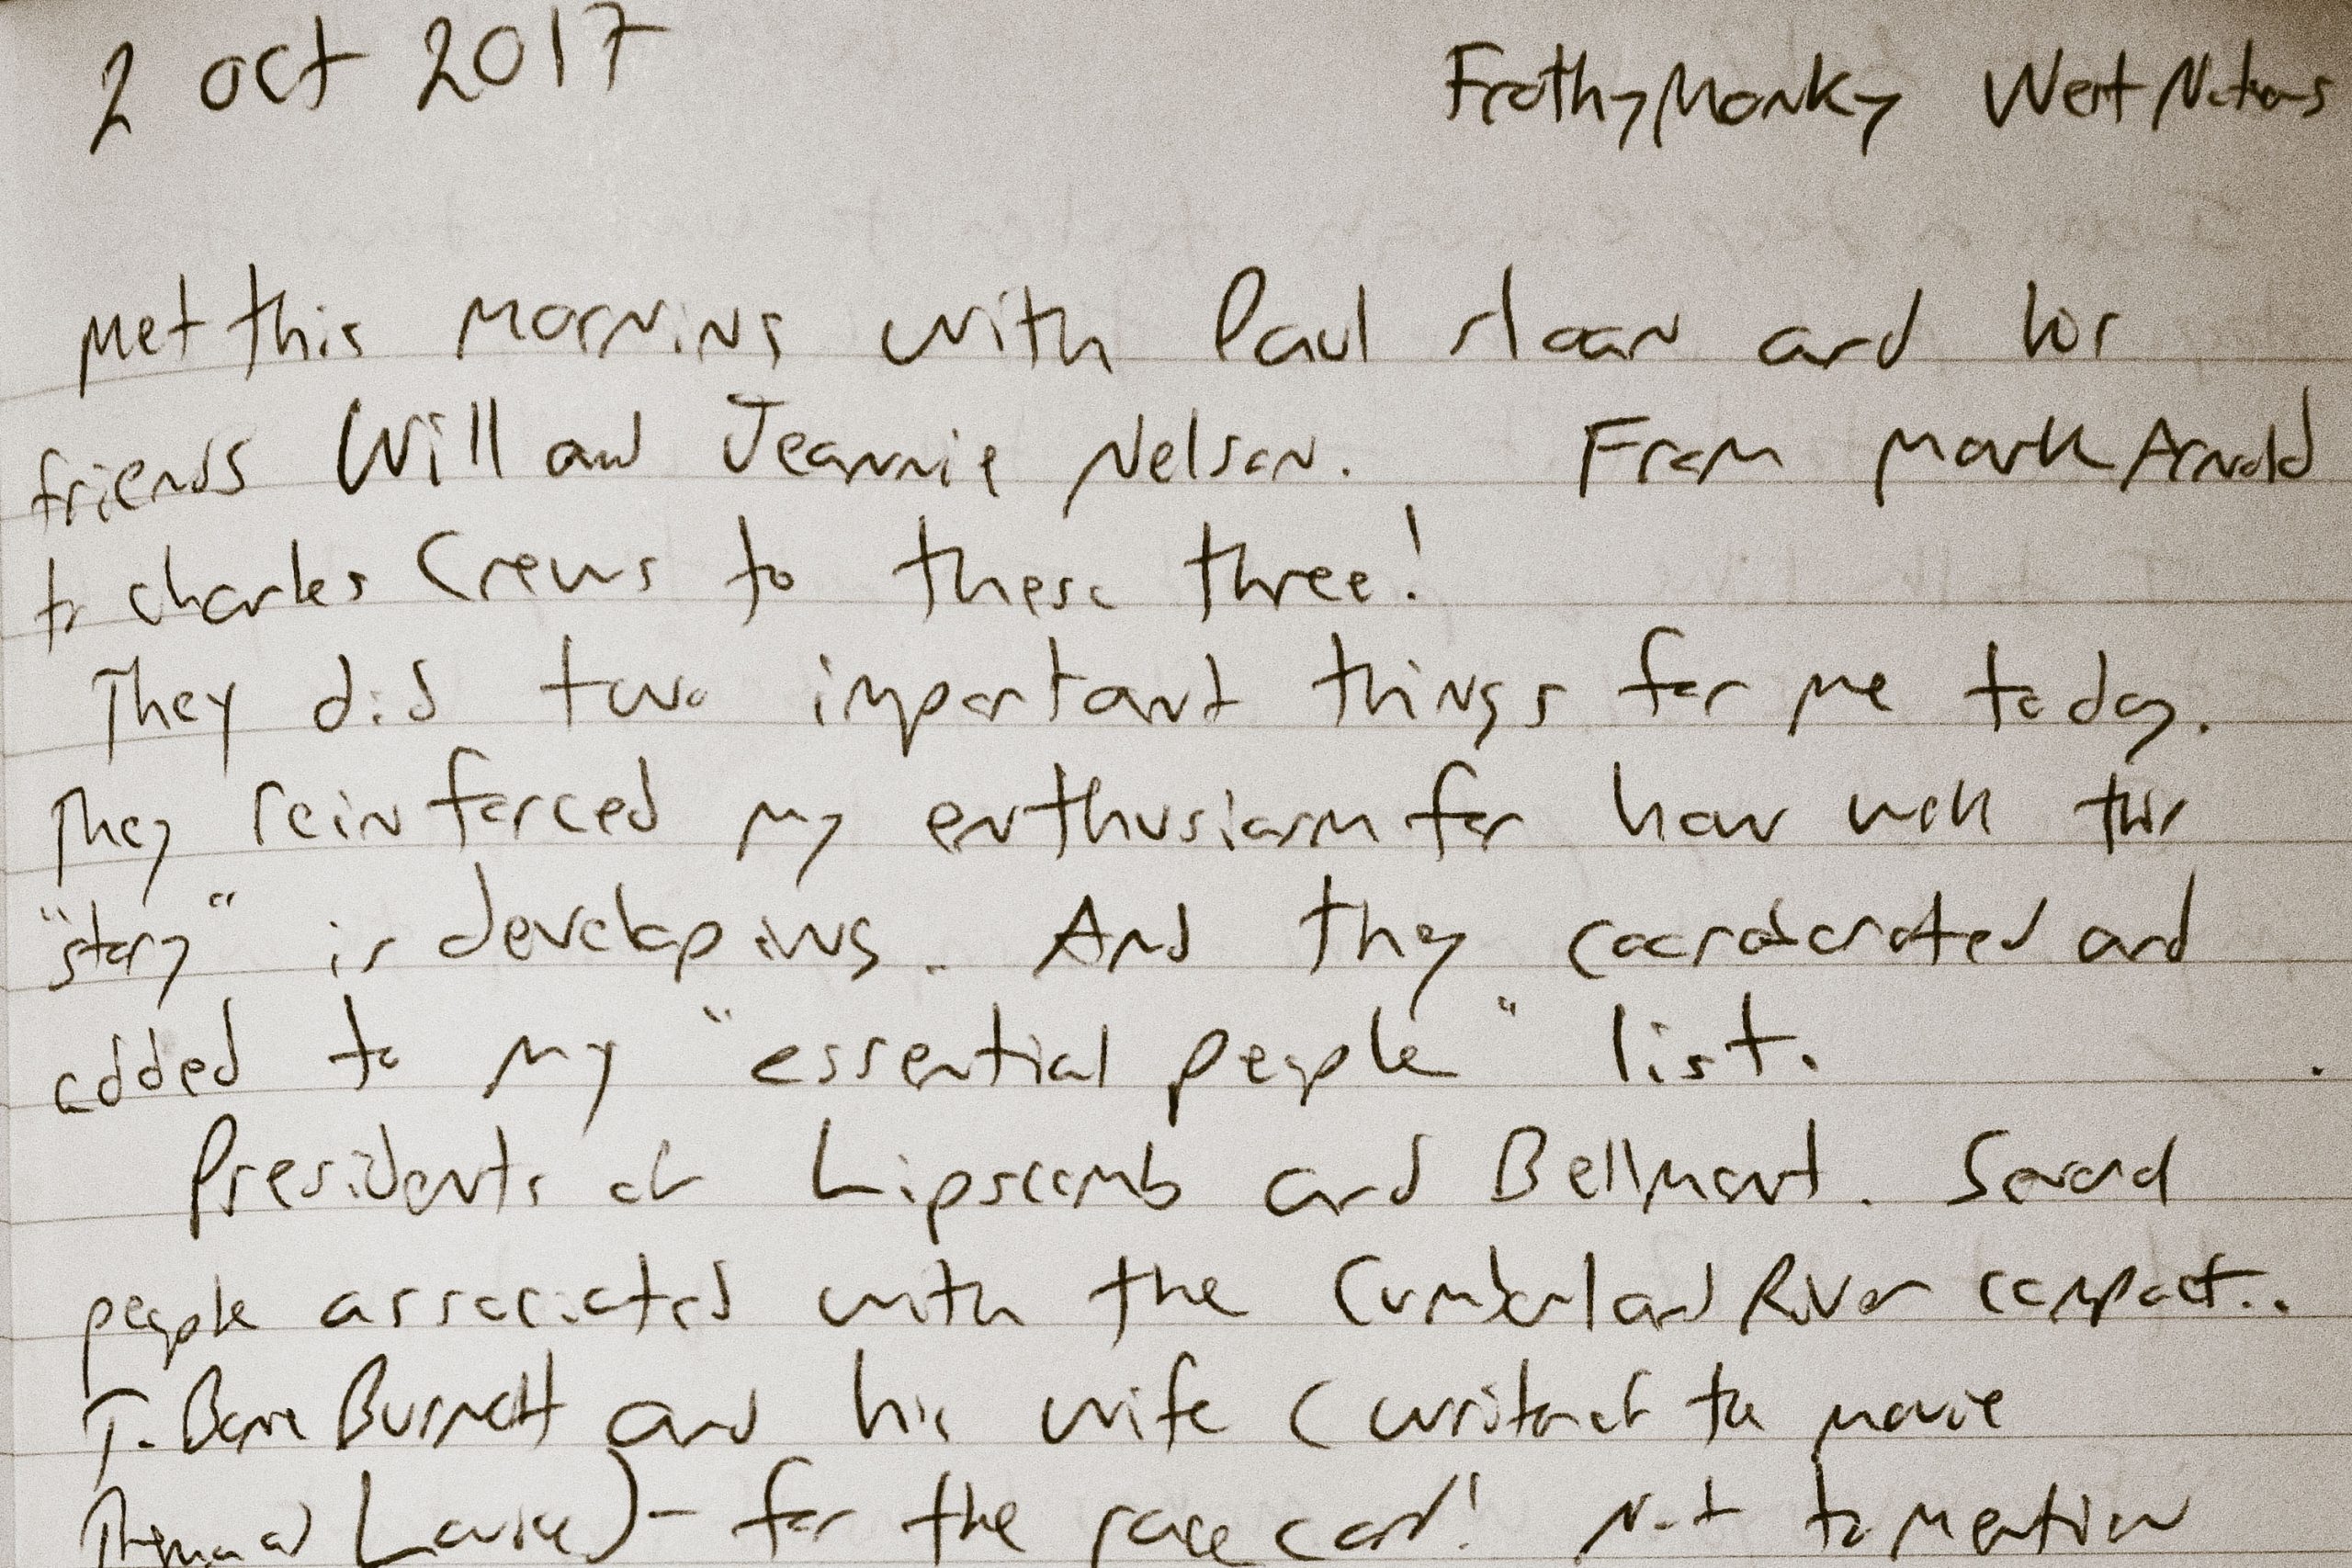 2 Oct 2017 FrothyMonky West Nations
Met this morning with Paul Sloan and his
friends Will and Jeannie Nelson. From Mark Arnold
to Charles Crews to these three!
They did two important things for me today.
They reinforced my enthusiasm for how well this
"story" is developing. And they and
added to my "essential people" list.
Presidents at Lipscomb and Bellmont. Several
people associated with the Cumberland River compact..
T. Bone Burnett and his wife (writer of the movie
Thelma and Louise) - for the race card! Not to mention